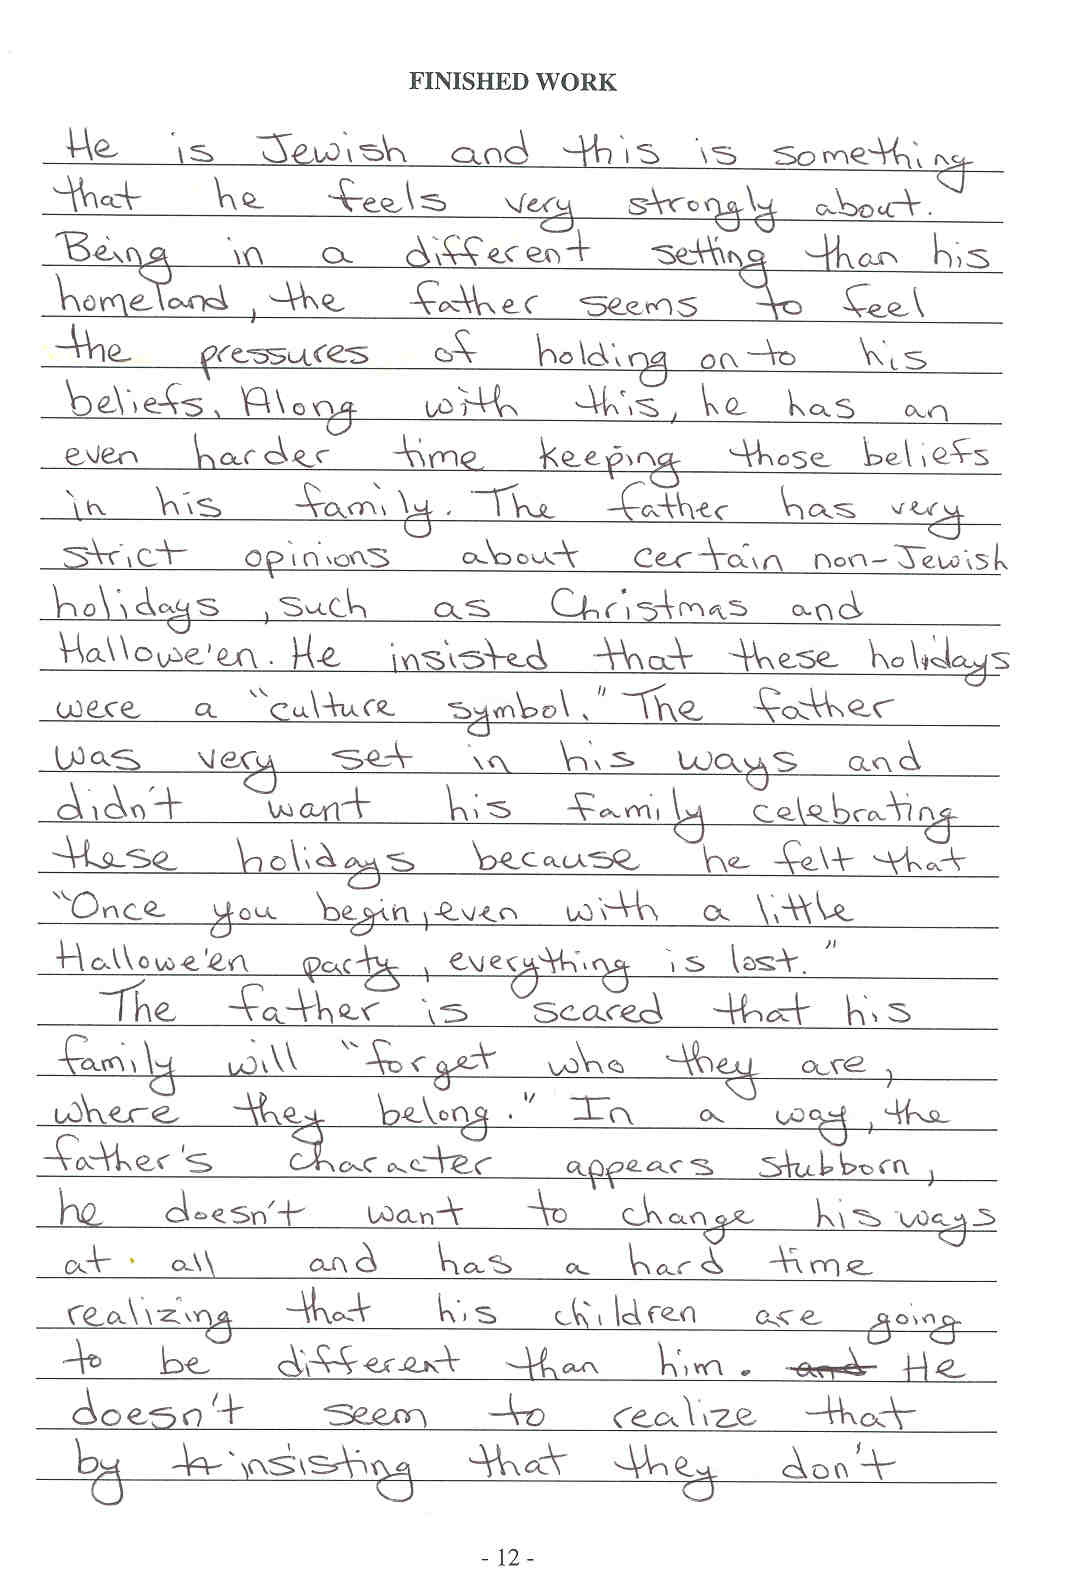 FINISHED WORK
He is Jewish and this is something
that he feels very strongly about.
Being in a different setting than his
homeland, the father seems to feel
the pressures of holding on to his
beliefs. Along with this, he has an
even harder time keeping those beliefs
in his family. The father has very
strict opinions about certain non-Jewish
holidays, such as Christmas and
Hallowe'en. He insisted that these holidays
were a "culture symbol." The father
was very set in his ways and
didn't want his family celebrating
these holidays because he felt that
"Once you begin, even with a little
Hallowe'en party, everything is lost."
The father is scared that his
family will "forget who they are,
where they belong." In a way, the
father's character appears stubborn,
he doesn't want to change his ways
at all and has a hard time
realizing that his children are going
to be different than him. and He
doesn't seem to realize that
by insisting that they don't
- 12 -